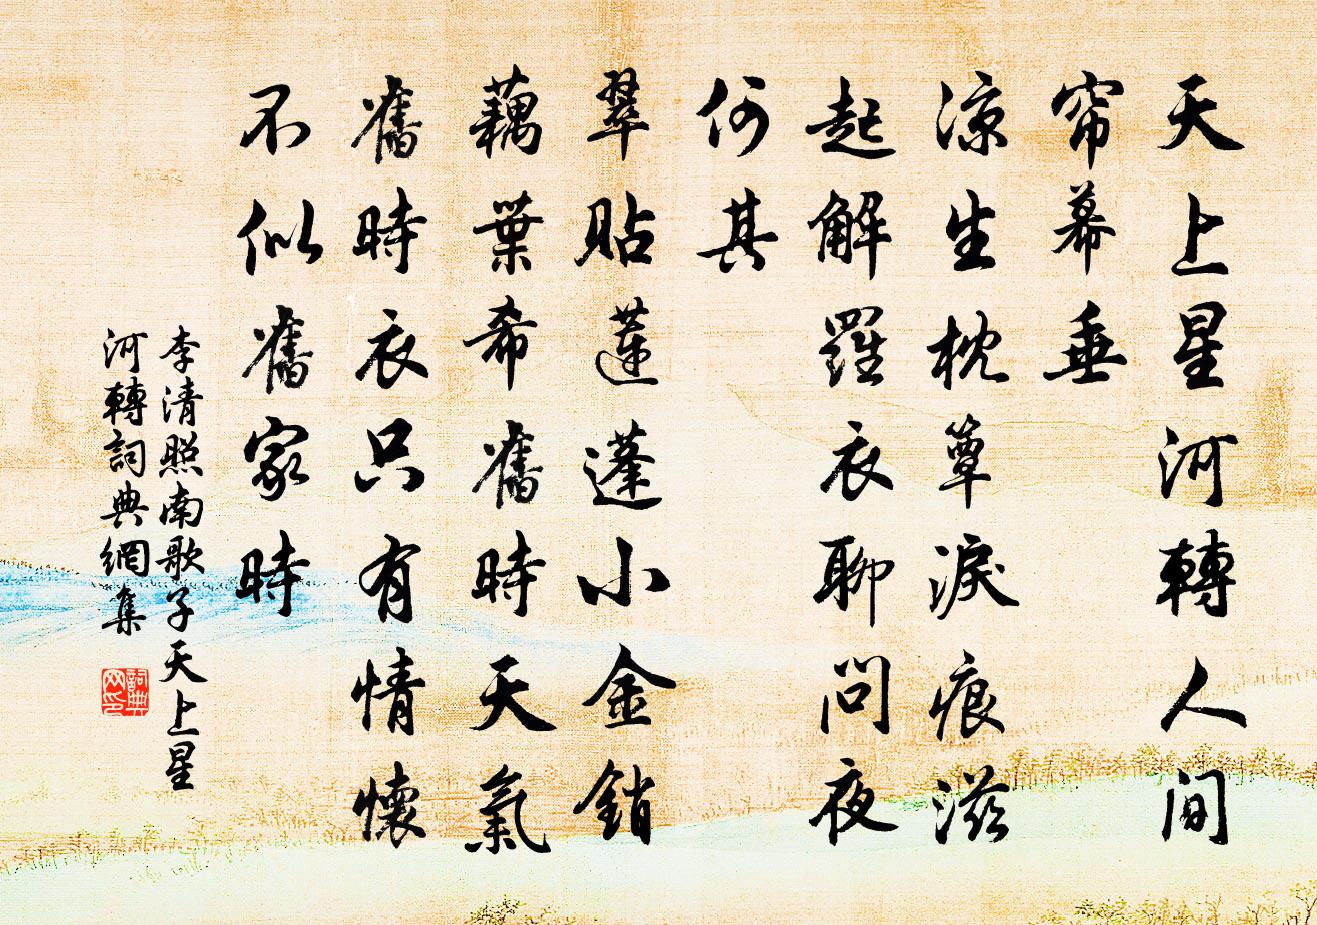 天上星河轉人間
帘幕垂
涼生枕簟淚痕滋
起解羅衣聊問夜
何其
翠貼蓮蓬小金銷
藕葉希舊時天氣
舊時衣只有情懷
不似舊家時
李清照南歌子天上星
河轉詞典網集
詞典
网印